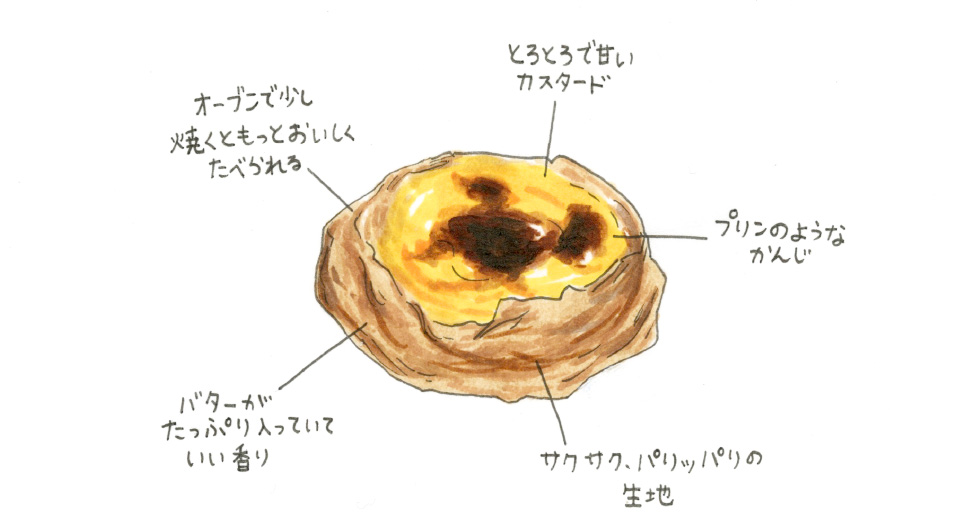 とろとろで甘い
カスタード
オーブンで少し
焼くともっとおいしく
たべられる
プリンのような
かんじ
バターが
たっぷり入っていて
いい香り
サクサク、パリッパリの
生地